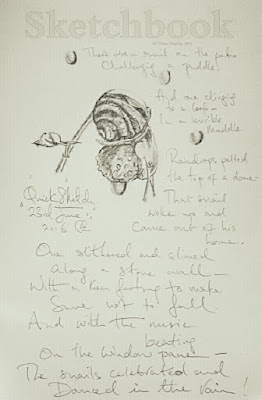 Sketchbook
There was a snail on the patio
Challenging a puddle!
And one clinging
to a leaf –
In a terrible
muddle
Raindrops pelted
the top of a dome –
That snail
woke up and
Came out of his
home.
Quick Sketch
23rd June
2015
One slithered and slimed
along a stone wall –
With a keen footing to make
Sure not to fall
And with the music
beating
On the window pane –
The snails celebrated and
Danced in the rain!